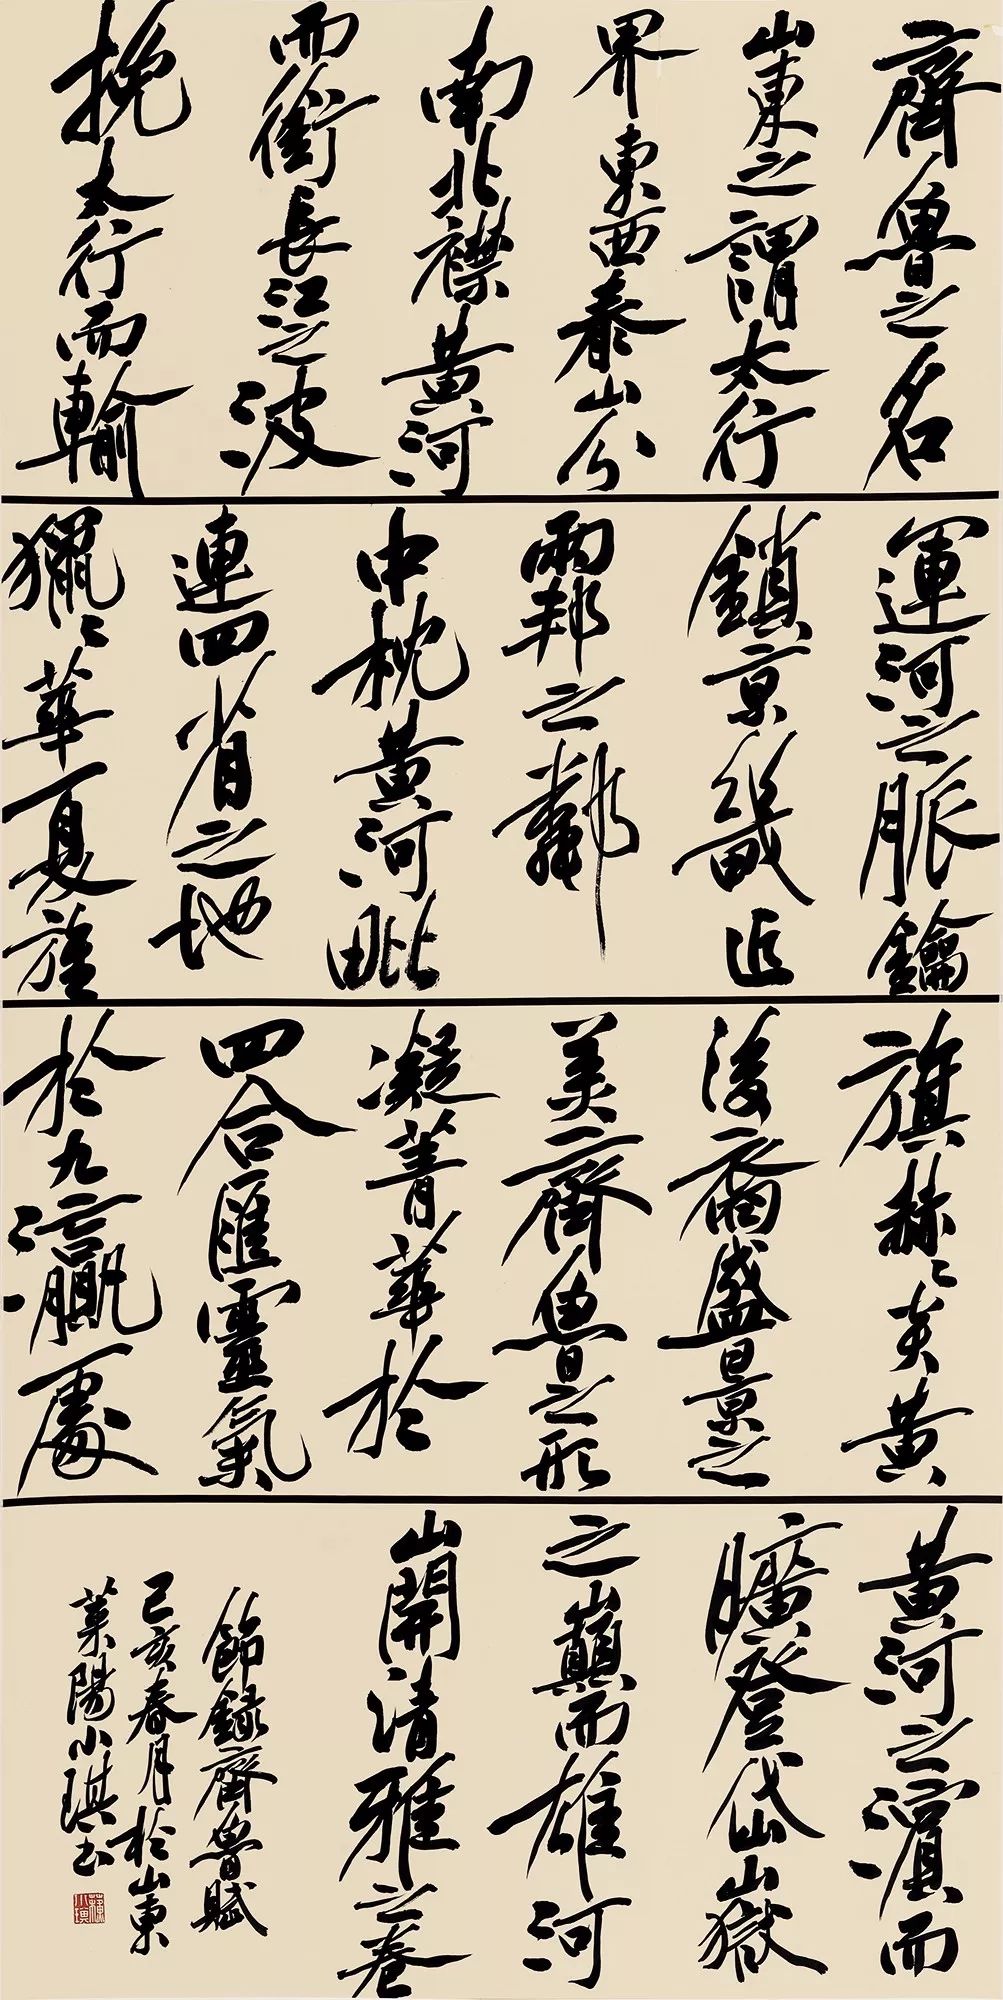 齊魯之名
山東之謂太行
界東西泰山分
南北襟黃河
而銜長江之波
挽太行而輸
運河之脈鑰
鎖京畿近
兩邦之鄰
中枕黃河毗
連四省之地
獵〻華夏旌
旗赫〻炎黃
後裔盛景之
美齊魯之形
凝菁華於
四合匯靈氣
於九瀛處
黃河之濱而
曠登岱山嶽
之巔而雄河
山開清雅之卷
節錄齊魯賦
己亥春月於山東
萊陽小琪書